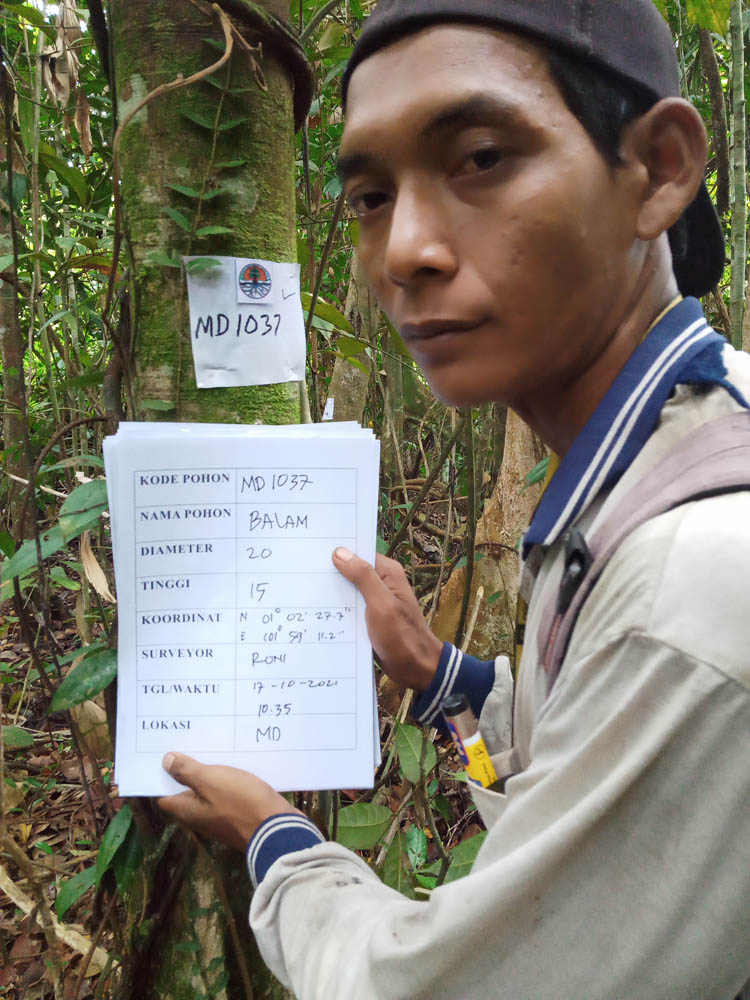 MD 1037
KODE POHON MD 1037
NAMA POHON BALAM
DIAMETER 20
TINGGI 15
KOORDINAT N 01° 02' 27.7"
E 101° 59' 11.2"
SURVEYOR RONI
TGL/WAKTU 17-10-2021
10.35
LOKASI MD